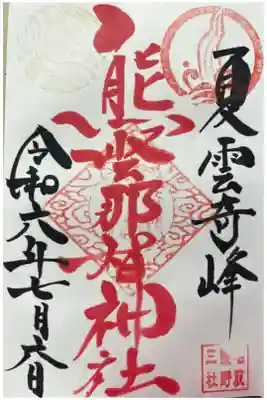 夏雲奇峰
熊埜那智神社
令和六年七月六日